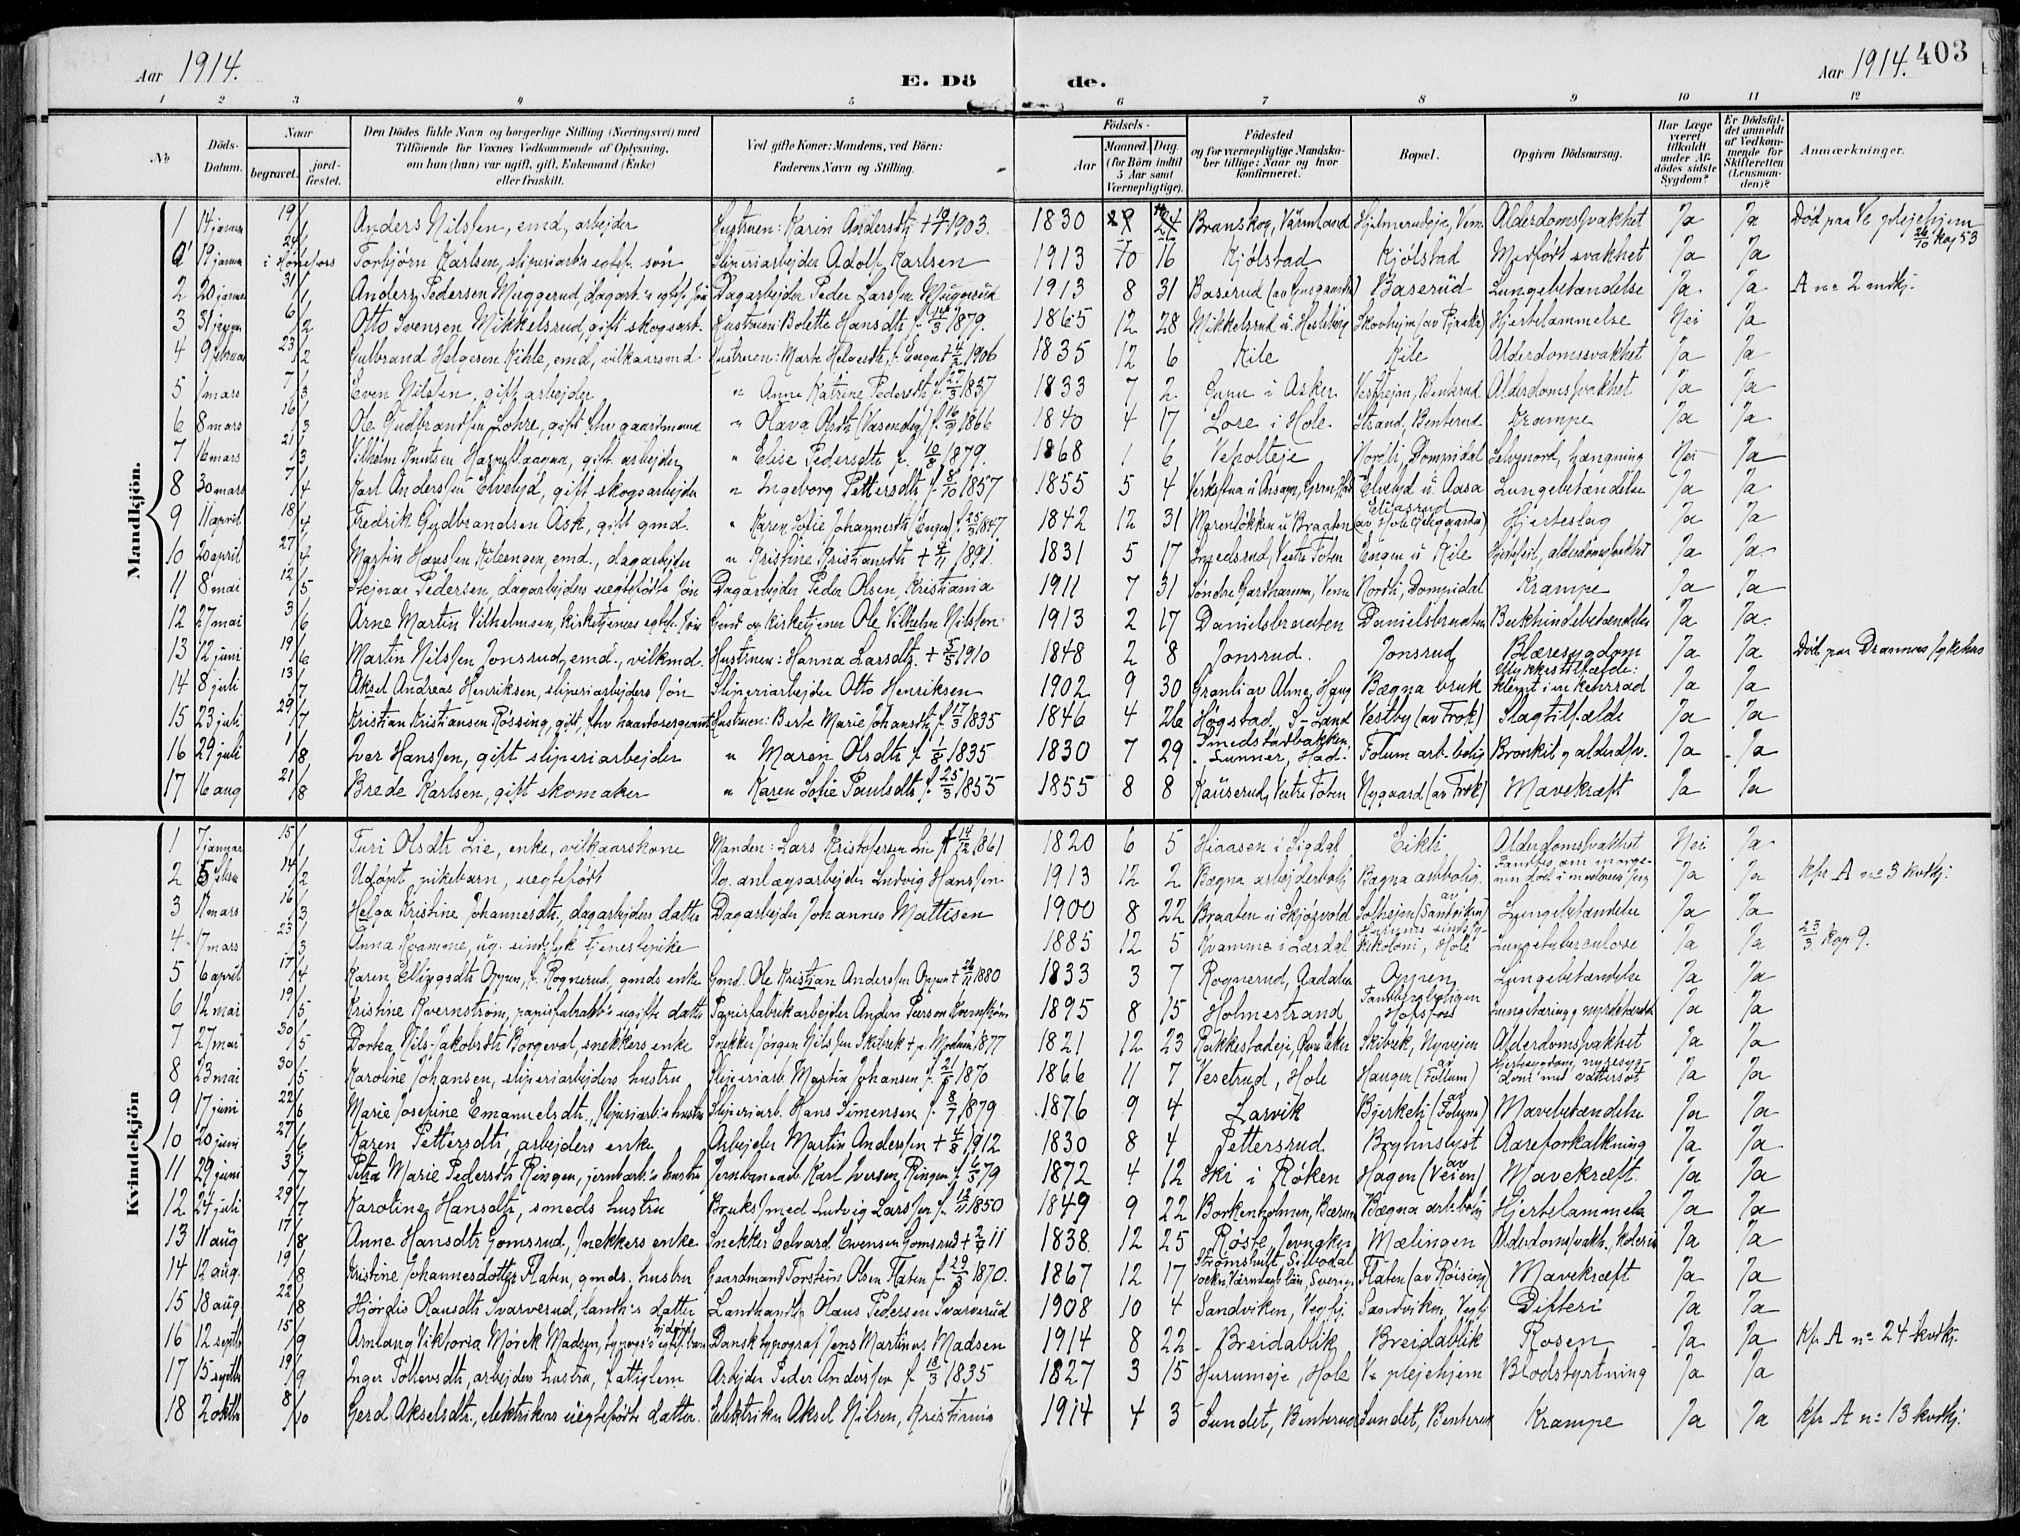 Aar 1914.
E. Döde.
Aar 1914. 403
1 2 3 4 5 6 7 8 9 10 11 12
No
Döds-Datum.
Naar begravet. jordfæstet.
Den Dödes fulde Navn og borgerlige Stilling (Næringsvei) med Tilföiende for Voxnes Vedkommende af Oplysning, om han (hun) var ugift, gift, Enkemand (Enke) eller fraskilt.
Ved gifte Koner: Mandens, ved Börn: Faderens Navn og Stilling.
Födsels- Aar Maaned. Dag. (for Börn indtil 5 Aar samt Værnepligtige).
Födested og for værnepligtige Mandskaber tillige: Naar og hvor konfirmeret.
Bopæl.
Opgiven Dödsaarsag.
Har Læge været tilkaldt under Afdödes sidste Sygdom?
Er Dödsfaldet anmeldt af Vedkommende for Skifteretten (Lensmanden)?
Anmærkninger.
Mandkjön.
1 14 januar 19/1 Anders Nilssen, emd, arbejder Hustruen: Karin Andersdtr + 1903. 1830 Brunskog, Värmland Alderdomssvakhet Ja Ja Død paa plejehjem
19 januar i Hønefoss Torbjørn Karlsen, sliperiarb's egtef. søn Sliperiarbejder Adolf Karlsen 1913 10 16 Kjølstad Kjølstad Medfødt svakhet Ja Ja
2 20 januar 31/1 Anders Pedersen Muggerud, dagarb's egtef. søn Dagarbejder Peder Larssen Muggerud 1913 8 31 Baserud Baserud Lungebetændelse Ja Ja A no 2 mdkj.
3 31 januar 6/2 Otto Svensen Mikkelsrud, gift skogsarb. Hustruen: Bolette Hansdtr f. 14/3 1879. 1865 12 28 Mikkelsrud Skovheim Hjertelammelse Nei Ja
4 9 februar 23/2 Gulbrand Helgesen Kihle, emd, vilkaarsmd. Hustruen: Marte Helgesdtr, 1906 1835 12 6 Kile Kile Alderdomssvakhet Ja Ja
5 1 mars 7/3 Even Nilssen, gift, arbejder " Anne Katrine Pedersdtr f. 1837 1833 7 2 i Asker Vestheim, Benterud Alderdomssvakhet Ja Ja
6 8 mars 16/3 Ole Gudbrandsen Lohre, gift fhv gaardmand " Olava Olsdtr (Vasenden) f. 1866 1840 4 17 Lore i Hole. Strand, Benterud Krampe Ja Ja
7 16 mars 21/3 Vilhelm Knutsen gift. arbejder " Elise Pedersdtr f. 10/3 1879. 1868 1 6 Norli, Dompidal Selvmord, hængning Nei Ja
8 30 mars 7/4 Karl Anderssen Elvelyd, gift skogsarbejder " Ingeborg Pettersdtr f. 8/10 1857 1855 5 4 Elvelyd u. Aasa Lungebetændelse Ja Ja
9 11 april 18/4 Fredrik Gudbrandsen Ask, gift gmd. " Karen Sofie Johannesdtr (Engen) f. 1847. 1842 12 31 Marenløkken u Braaten Eliasrud Hjerteslag Ja Ja
10 20 april 27/4 Martin Hanssen Kileengen, emd., dagarbejder " Kristine Kristiansdtr + 1891. 1831 5 17 Smedsrud, Vestre Toten Engen u Kile Hjertefeil, alderdomssvakhet Ja Ja
11 8 mai 12/5 Pedersen, dagarbejders uegtefødte søn Dagarbejder Peder Olsen, Kristiania 1911 7 31 Norli, Dompidal Krampe Ja Ja
12 27 mai 3/6 Arne Martin Vilhelmsen, kirketjeners egtef. søn Gmd og kirketjener Ole Vilhelm Nilssen 1913 2 17 Danielsbraaten Danielsbraaten Bukhindebetændelse Ja Ja.
13 12 juni 19/6 Martin Nilssen Jonsrud, emd., vilkmd. Hustruen: Hanna Larsdtr. + 5/5 1910 1848 2 8 Jonsrud. Jonsrud Blæresygdom Ja Ja Død paa Drammens sykehus
14 8 juli 13/7 Aksel Andreas Henriksen, sliperiarbejders søn Sliperiarbejder Otto Henriksen 1902 9 30 Granli av Alme, Haug Bægna bruk Ulykkestilfælde: klemt i en kjerrad Ja Ja
15 23 juli 29/7 Kristian Kristiansen Røssing, gift, fhv Hustruen: Berte Marie Johansdtr f. 17/3 1835 1846 4 26 Høgstad, S-Land Vestby (av Trok) Slagtilfælde Ja Ja
16 29 juli 1/8 Iver Hanssen, gift sliperiarbejder " Maren Olsdtr f. 1/8 1835 1830 7 29 Smedstadbakken, Lunner, Had. Follum arb. bolig Bronkit og alderdsv. Ja Ja
17 16 aug 21/8 Brede Karlsen, gift skomaker " Karen Sofie Paulsdtr f. 25/3 1855 1855 8 8 Kauserud, Vestre Toten Nygaard (av Trok) Mavekræft Ja Ja
Kvindekjön
1 7 januar 15/1 Turi Olsdtr Lie, enke, vilkaarskone Manden: Lars Kristofersen Lie 14/12 1861 1820 6 5 Hiaasen i Sigdal Eikli Alderdomssvakhet Nei Ja
2 5 febr 14/2 Udøpt pikebarn, uegtefødt Ug. anlægsarbejder Ludvig Hanssen 1913 12 2 Bægna arbejderbolig Bægna arbbolig. Fandtes om morgenen død i moderens seng Ja Ja Kfr A no 3 kvdkj.
3 11 mars 16/3 Helga Kristine Johannesdtr, dagarbejders datter Dagarbejder Johannes Mattisen 1900 8 22 Braaten u Skjørvold Solheim (av Sandviken) Lungebetændelse Ja Ja
4 17 mars 23/3 Anna Kvamme, ug. sindssyk tjenestepike 1885 12 5 Kvamme i Lærdal Hole Lungetuberculose Ja Ja 23/3 kap 9.
5 6 april 17/4 Karen Ellingsdtr Oppen, f. Rognerud, gmds enke Gmd. Ole Kristian Anderssen Oppen + 1880 1833 3 7 Rognerud, Aadalen Oppen Lungebetændelse Ja Ja
6 12 mai 19/5 Kristine Kvernstrøm, papirfabrarb's ugifte datter Papirfabrikarbejder Anders Person Kvernstrøm 1895 8 15 Holmestrand Hofsfoss Lungetæring Ja Ja
7 27 mai 30/5 Dortea Nils-Jakobsdtr Borgeval, snekkers enke Snekker Jørgen Nilssen Skibrek + p. Modum 1877 1821 12 23 Skibrek, Nyveien Alderdomssvakhet Ja Ja
8 23 mai 30/5 Karoline Johansen, sliperiarbejders hustru Sliperiarb. Martin Johansen f. 1870 1866 11 7 Vesetrud, Hole Haugen (av Follum) Hjertesygdom, nyresygdom med vattersot Ja Ja
9 17 juni 22/6 Marie Josefine Emanuelsdtr, sliperiarb's hustru Sliperiarb. Hans Simensen f. 8/7 1879. 1876 9 4 Larvik Bjerkeli Mavebetændelse Ja Ja
10 20 juni 27/6 Karen Pettersdtr, arbejders enke Arbejder Martin Anderssen + 4/8 1912 1830 8 4 Pettersrud Bryhnslyst Aareforkalkning Ja Ja
11 29 juni 3/7 Petra Marie Pedersdtr Ringen, jernbarb's hustru Jernbanearb Karl Iversen Ringen f. 79 1872 4 12 Ski i Røken Hagen (av Veien) Mavekræft. Ja Ja
12 24 juli 29/7 Karoline Hansdtr, smeds hustru Bruksmed Ludvig Larssen f. 1850 1849 9 22 Borkenholmen, Bærum Bægna arb. bolig Hjertelammelse Ja Ja
13 11 aug 17/8 Anne Hansdtr Gomsrud, snekkers enke Snekker Edvard Evensen Gomsrud + 11 1838. 12 25 Røste, Jevnaker Mælingen Alderdomssvakh. Ja Ja
14 12 aug. 19/8 Kristine Johannesdotter Flaten, gmds. hustru Gaardmand Torstein Olsen Flaten f. 29/3 1870. 1867 12 17 Silbodal Flaten (av Røising) Mavekræft Ja Ja
15 18 aug 22/8 Hjørdis Olausdtr Svarverud, landh's datter Landhandler Olaus Pedersen Svarverud 1908 10 4 Sandviken, Vegly Sandviken, Vegly Difteri Ja Ja
16 12 septbr 15/9 Arnlaug Viktoria Mørck Madsen, typogr's egtef. barn Dansk typograf Jens Martinus Madsen 1914 8 22 Breidablik Breidablik Rosen Ja Ja Kfr A no 24 kvdkj.
17 15 septbr 19/9 Inger Tollevsdtr, arbejders hustru, fattiglem Arbejder Peder Anderssen f. 18/3 1835 1827 3 15 Hurumeje, Hole plejehjem Blodstyrtning Ja Ja
18 2 oktbr 8/10 Gerd Akselsdtr., elektrikers uegtefødte datter. Elektriker Aksel Nilsen, Kristiania 1914 4 3 Sundet, Benterud Sundet, Benterud Krampe Ja Ja Kfr A no 13 kvdkj.